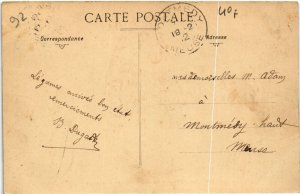 92
CARTE POSTALE
40f
Correspondance
Adresse
Légumes arrivés bon état
remerciements
Mesdemoiselles M. Adam
à
Montmédy-haut
Meuse